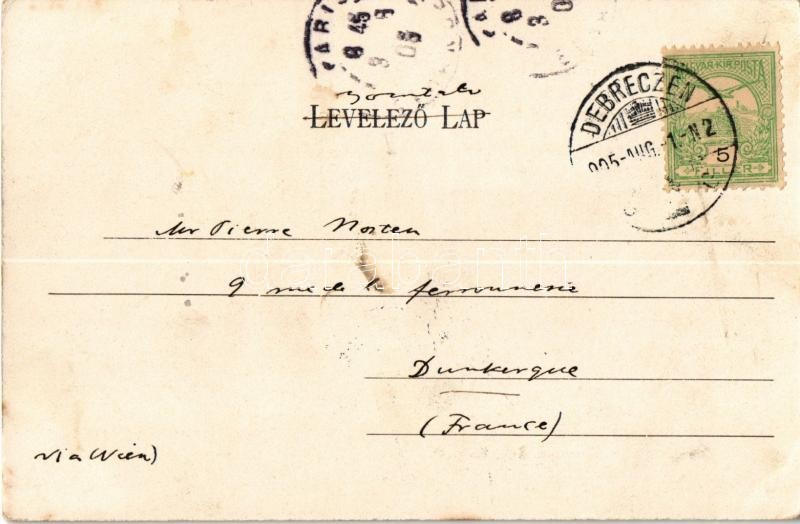 PARIS
8 45
3
05
8
3
05
LEVELEZŐ LAP
DEBRECZEN
905-AUG.-1.-N2
MAGYAR·KIR·POSTA
5
FILLÉR
Mr Pierre Norten
9 rue de la ferronnerie
Dunkerque
(France)
via Wien)
darabanth